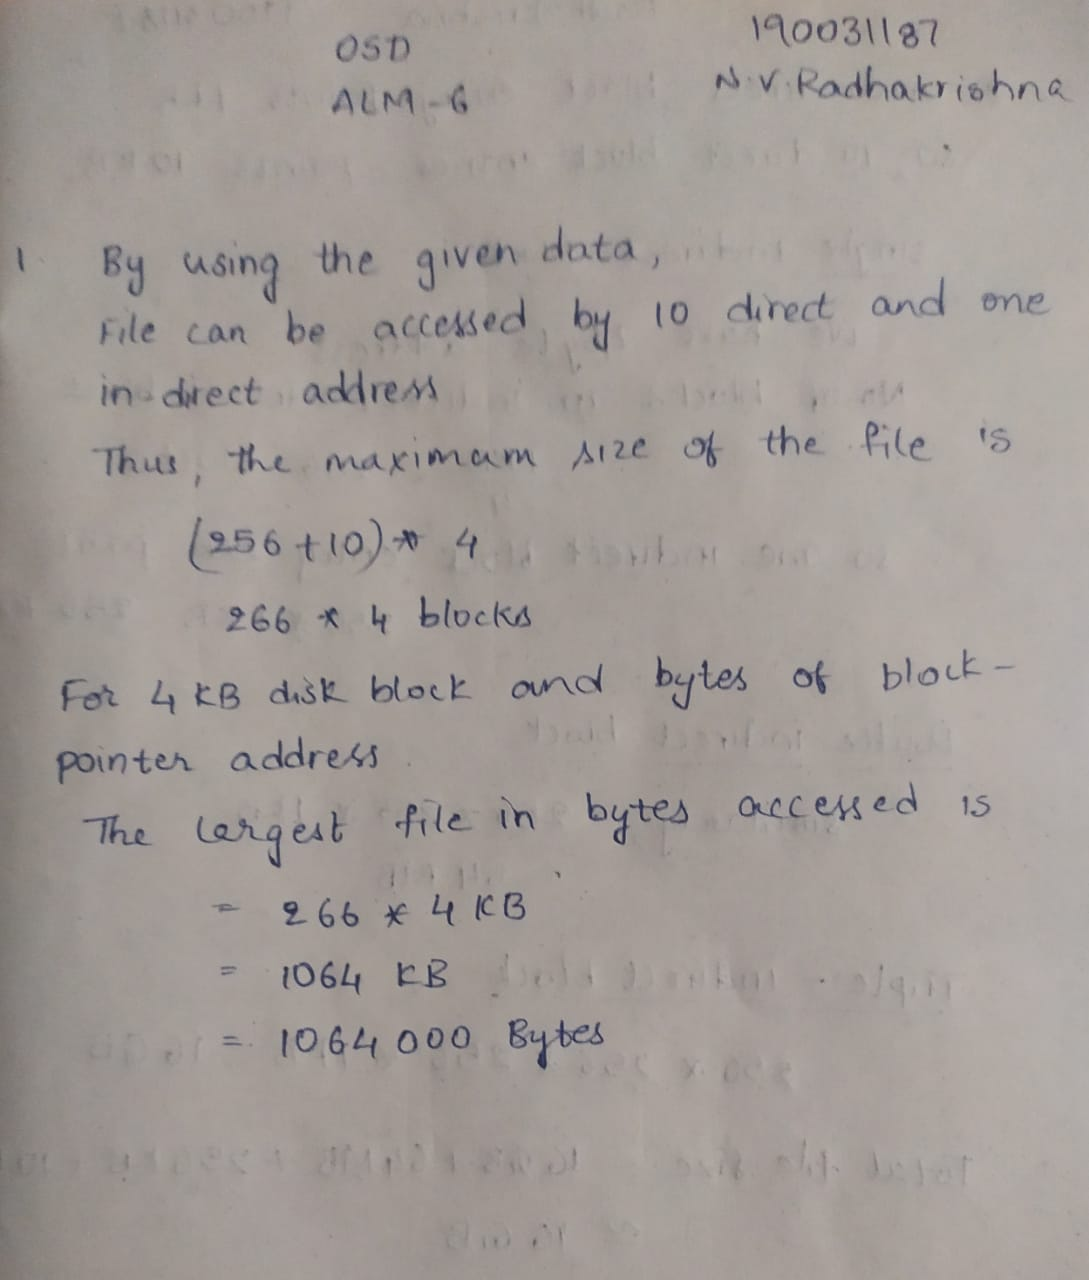 OSD
ALM-6
190031187
N.V.Radhakrishna
1 By using the given data,
File can be accessed by 10 direct and one
in-direct address
Thus, the maximam size of the file is
(256+10)* 4
266 * 4 blocks
For 4 KB disk block and bytes of block-
pointer address.
The largest file in bytes accessed is
= 266 * 4 KB
= 1064 KB
= 1064000 Bytes